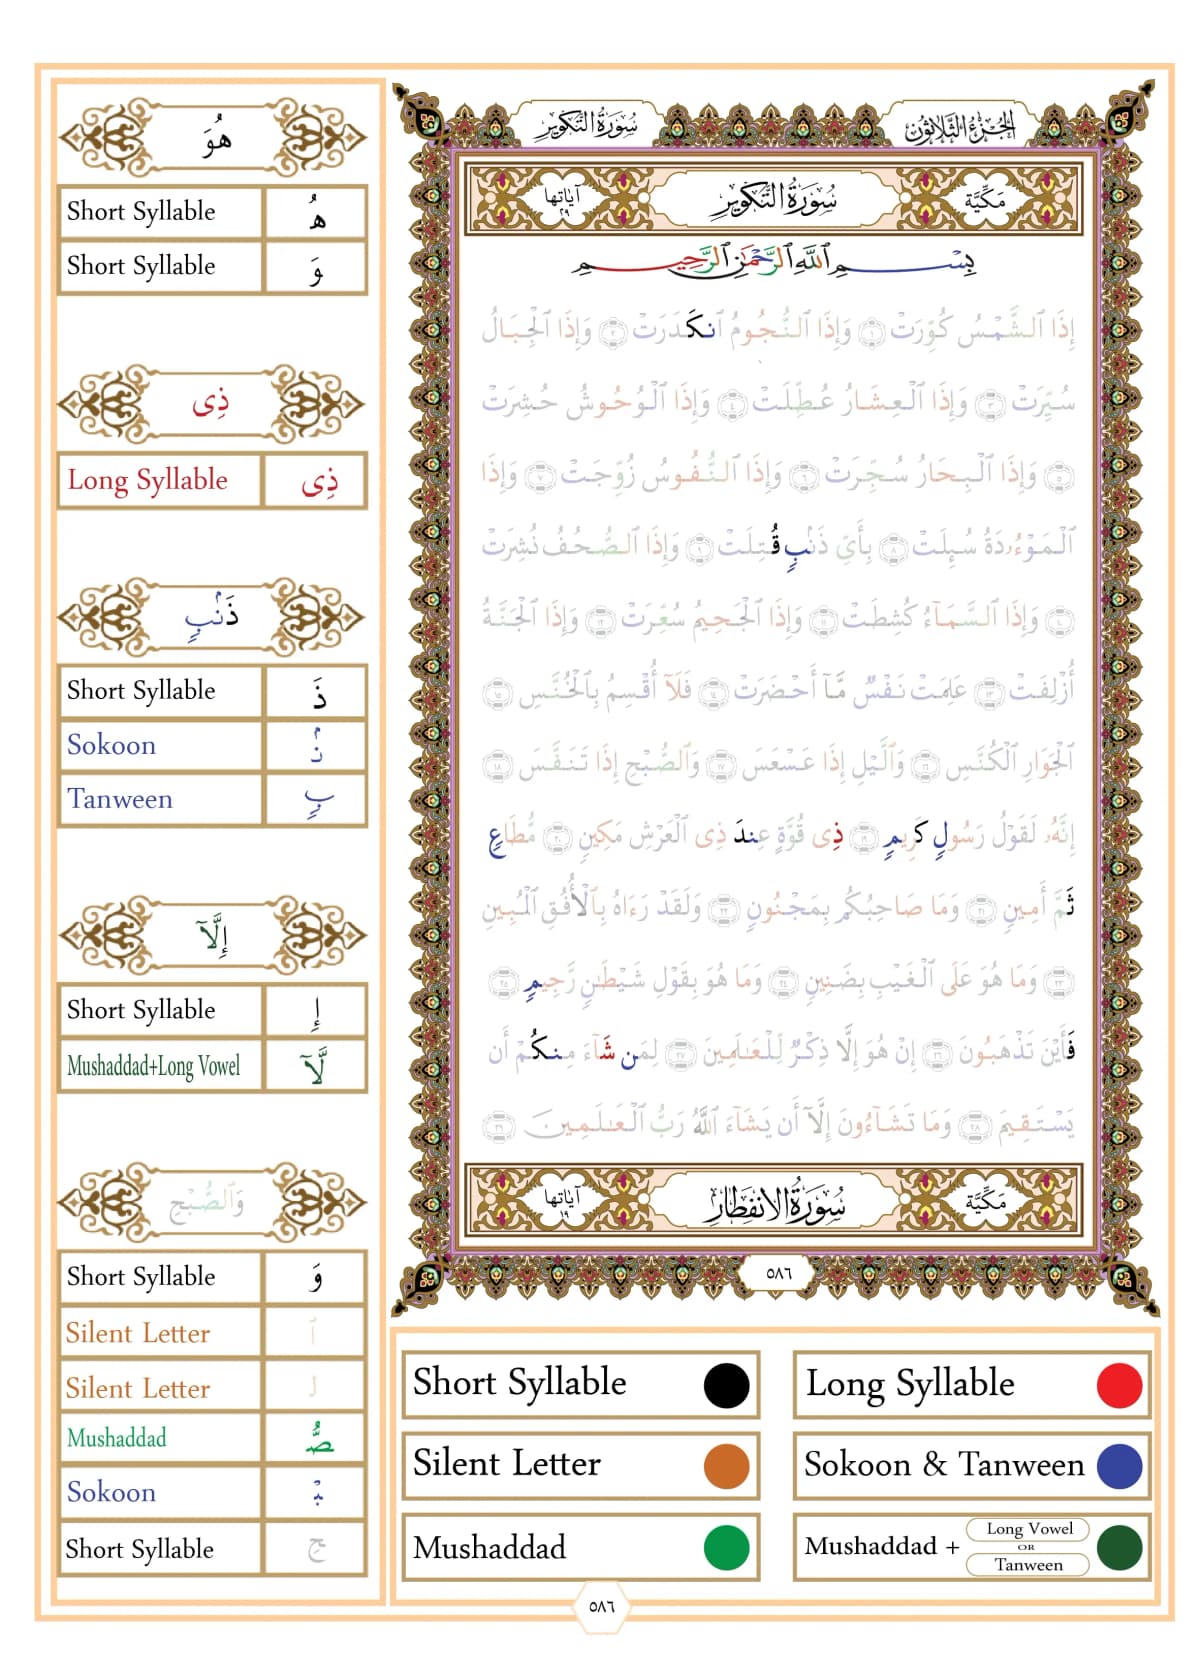 الجزء الثلاثون
سورة التكوير
مَكِّيَّة
سُورَةُ التَّكْوِيرِ
آيَاتُهَا ٢٩
بِسْمِ ٱللَّهِ ٱلرَّحْمَٰنِ ٱلرَّحِيمِ
إِذَا ٱلشَّمْسُ كُوِّرَتْ ١ وَإِذَا ٱلنُّجُومُ ٱنكَدَرَتْ ٢ وَإِذَا ٱلْجِبَالُ
سُيِّرَتْ ٣ وَإِذَا ٱلْعِشَارُ عُطِّلَتْ ٤ وَإِذَا ٱلْوُحُوشُ حُشِرَتْ
٥ وَإِذَا ٱلْبِحَارُ سُجِّرَتْ ٦ وَإِذَا ٱلنُّفُوسُ زُوِّجَتْ ٧ وَإِذَا
ٱلْمَوْءُۥدَةُ سُئِلَتْ ٨ بِأَىِّ ذَنۢبٍ قُتِلَتْ ٩ وَإِذَا ٱلصُّحُفُ نُشِرَتْ
١٠ وَإِذَا ٱلسَّمَآءُ كُشِطَتْ ١١ وَإِذَا ٱلْجَحِيمُ سُعِّرَتْ ١٢ وَإِذَا ٱلْجَنَّةُ
أُزْلِفَتْ ١٣ عَلِمَتْ نَفْسٌ مَّآ أَحْضَرَتْ ١٤ فَلَآ أُقْسِمُ بِٱلْخُنَّسِ ١٥
ٱلْجَوَارِ ٱلْكُنَّسِ ١٦ وَٱلَّيْلِ إِذَا عَسْعَسَ ١٧ وَٱلصُّبْحِ إِذَا تَنَفَّسَ ١٨
إِنَّهُۥ لَقَوْلُ رَسُولٍ كَرِيمٍ ١٩ ذِى قُوَّةٍ عِندَ ذِى ٱلْعَرْشِ مَكِينٍ ٢٠ مُّطَاعٍ
ثَمَّ أَمِينٍ ٢١ وَمَا صَاحِبُكُم بِمَجْنُونٍ ٢٢ وَلَقَدْ رَءَاهُ بِٱلْأُفُقِ ٱلْمُبِينِ
٢٣ وَمَا هُوَ عَلَى ٱلْغَيْبِ بِضَنِينٍ ٢٤ وَمَا هُوَ بِقَوْلِ شَيْطَٰنٍ رَّجِيمٍ ٢٥
فَأَيْنَ تَذْهَبُونَ ٢٦ إِنْ هُوَ إِلَّا ذِكْرٌ لِّلْعَٰلَمِينَ ٢٧ لِمَن شَآءَ مِنكُمْ أَن
يَسْتَقِيمَ ٢٨ وَمَا تَشَآءُونَ إِلَّآ أَن يَشَآءَ ٱللَّهُ رَبُّ ٱلْعَٰلَمِينَ ٢٩
مَكِّيَّة
سُورَةُ الِانفِطَارِ
آيَاتُهَا ١٩
٥٨٦
هُوَ
Short Syllable هُ
Short Syllable وَ
ذِى
Long Syllable ذِى
ذَنۢبٍ
Short Syllable ذَ
Sokoon نۢ
Tanween بٍ
إِلَّآ
Short Syllable إِ
Mushaddad+Long Vowel لَّآ
وَٱلصُّبْحِ
Short Syllable وَ
Silent Letter ٱ
Silent Letter ل
Mushaddad صُّ
Sokoon بْ
Short Syllable حِ
Short Syllable
Long Syllable
Silent Letter
Sokoon & Tanween
Mushaddad
Mushaddad + Long Vowel OR Tanween
٥٨٦